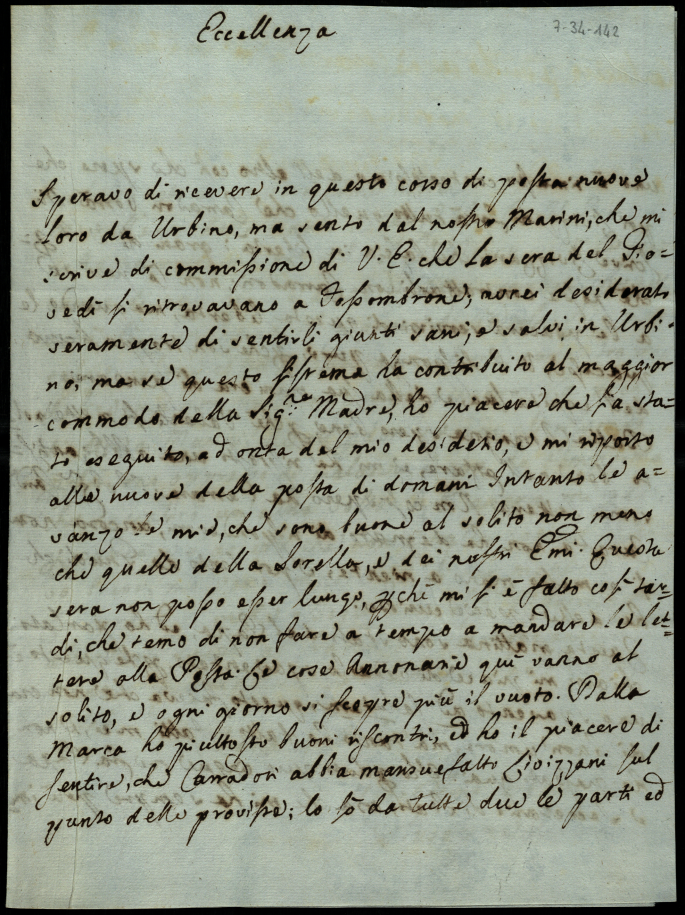 Eccellenza
7-34-142
Speravo di ricevere in questo corso di posta nuove
loro da Urbino, ma sento dal nostro Marini, che mi
scrive di commissione di V. E. che la sera del Gio=
vedì si ritrovavano a Fossombrone; averei desiderato
seramente di sentirli giunti sani, e salvi in Urbi=
no, ma se questo sistema ha contribuito al maggior
commodo della Sig.ra Madre, ho piacere che sia sta=
to eseguito, ad onta del mio desiderio, e mi riporto
alle nuove della posta di domani Intanto le a=
vanzo le mie, che sono buone al solito non meno
che quelle della Sorella, e dei nostri Emi. Questa
sera non posso esser lungo, pche mi si è fatto così tar=
di, che temo di non fare a tempo a mandare le let=
tere alla Posta Le cose Annonarie quì vanno al
solito, e ogni giorno si scopre più il vuoto. Dalla
Marca ho piuttosto buoni riscontri, ed ho il piacere di
sentire, che Carradori abbia mansuefatto Livizzani sul
punto delle proviste; lo sò da tutte due le parti ed